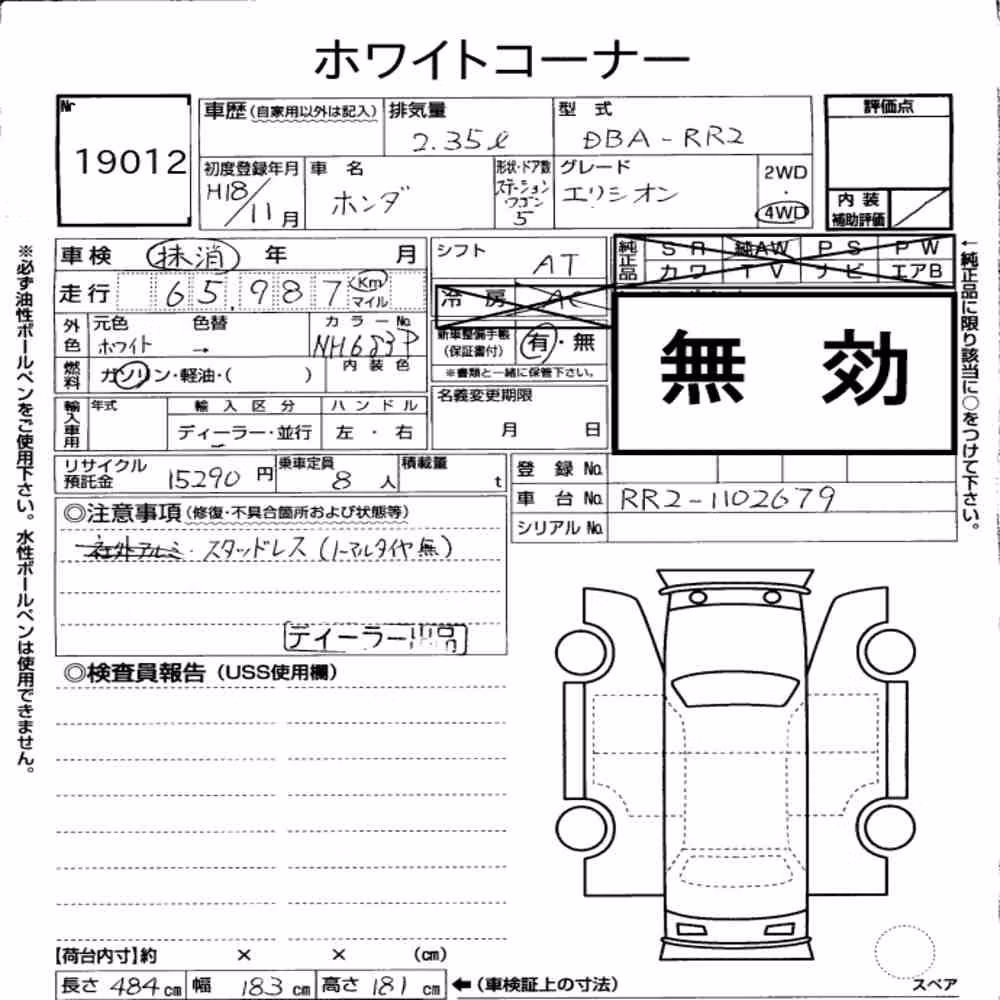 ホワイトコーナー
Nr
19012
車歴(自家用以外は記入)
排気量
2.35ℓ
型 式
DBA-RR2
初度登録年月
H18/11月
車 名
ホンダ
形状・ドア数
ステーション
ワゴン
5
グレード
エリシオン
2WD
・
4WD
評価点
内 装
補助評価
車検 抹消 年 月
走行 65,987 Km
マイル
シフト
AT
冷 房 AC
純正品
SR 純AW PS PW
カワ TV ナビ エアB
無 効
外色
元色 色替
ホワイト →
カラーNo.
NH683P
燃料
ガソリン・軽油・( )
内 装 色
新車整備手帳
(保証書付)
有・無
※書類と一緒に保管下さい。
輸入車用
年式
輸 入 区 分
ディーラー・並行
ハ ン ド ル
左 ・ 右
名義変更期限
月 日
リサイクル
預託金
15290 円
乗車定員
8 人
積載量
t
登 録 No.
車 台 No. RR2-1102679
シリアル No.
◎注意事項(修復・不具合箇所および状態等)
社外アルミ・スタッドレス(ノーマルタイヤ無)
ディーラー出品
◎検査員報告(USS使用欄)
【荷台内寸】約 × × (cm)
長さ 484 cm 幅 183 cm 高さ 181 cm
←(車検証上の寸法)
スペア
※必ず油性ボールペンをご使用下さい。水性ボールペンは使用できません。
←純正品に限り該当に○をつけて下さい。